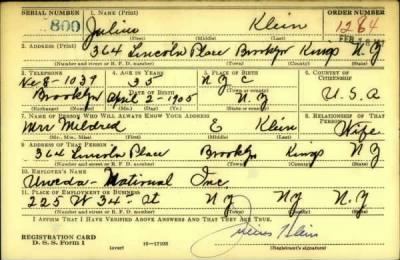 SERIAL NUMBER 1. NAME (Print) ORDER NUMBER
800 Julius Klein 1284
(First) (Middle) (Last)
2. ADDRESS (Print)
364 Lincoln Place Brooklyn Kings N.Y.
(Number and street or R. F. D. number) (Town) (County) (State)
3. TELEPHONE 4. AGE IN YEARS 5. PLACE OF BIRTH 6. COUNTRY OF CITIZENSHIP
Ne 8-1039 35 N.Y.C.
DATE OF BIRTH
Brooklyn April 2-1905 N.Y. U.S.A
7. NAME OF PERSON WHO WILL ALWAYS KNOW YOUR ADDRESS 8. RELATIONSHIP OF THAT PERSON
Mrs Mildred E Klein Wife
9. ADDRESS OF THAT PERSON
364 Lincoln Place Brooklyn Kings N.Y
(Number and street or R. F. D. number) (Town) (County) (State)
10. EMPLOYER'S NAME
National Inc.
11. PLACE OF EMPLOYMENT OR BUSINESS
225 W 34th St NY NY N.Y
(Number and street or R. F. D. number) (Town) (County) (State)
I AFFIRM THAT I HAVE VERIFIED ABOVE ANSWERS AND THAT THEY ARE TRUE.
REGISTRATION CARD
D. S. S. Form 1 (over) 16-17105 Julius Klein
(Registrant's signature)